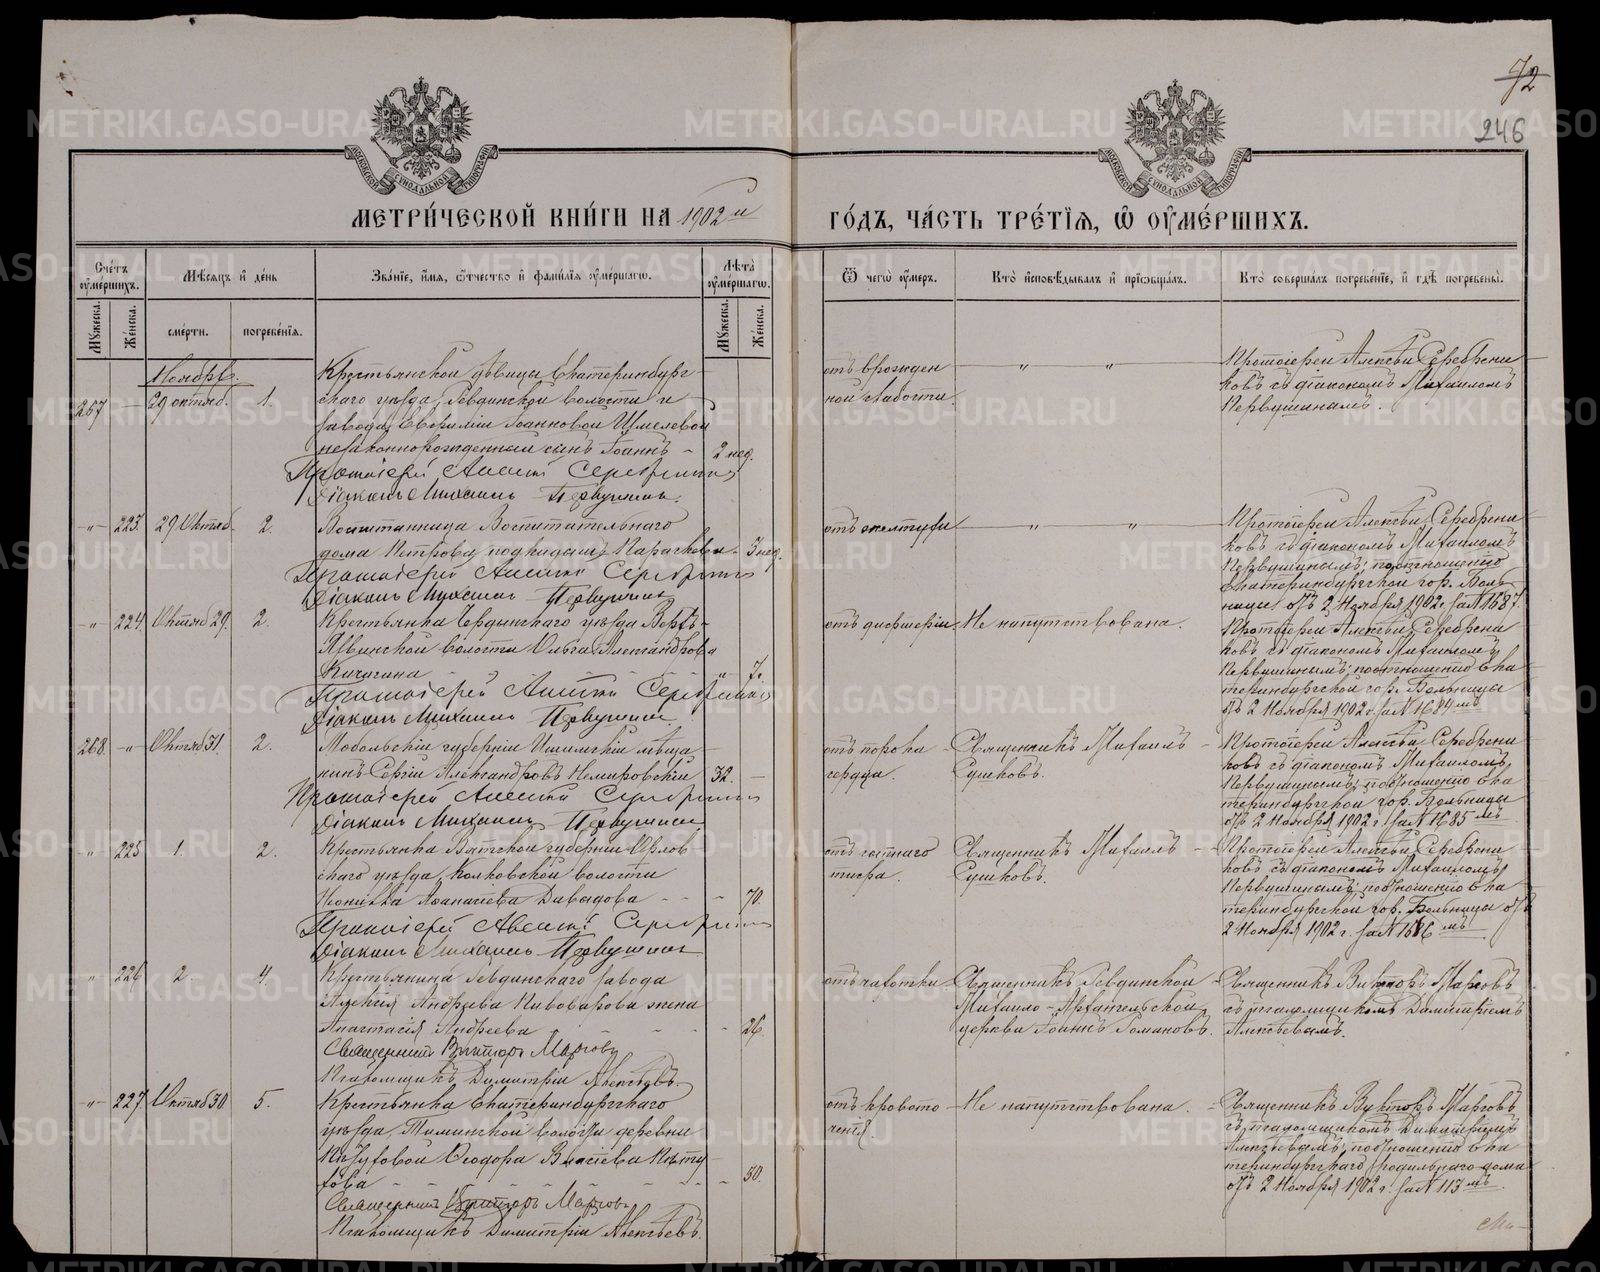 72
246
МЕТРИ́ЧЕСКОЙ КНИ́ГИ НА 1902й ГО́ДЪ, ЧА́СТЬ ТРЕ́ТІѦ, Ѽ ОУ҆МЕ́РШИХЪ.
Счетъ оумершихъ.
Мѣсяцъ и день
Званіе, имя, отчество и фамилія оумершагѡ.
Лѣта оумершагѡ.
Ѿ чегѡ оумеръ.
Кто исповѣдывалъ и пріобщалъ.
Кто совершалъ погребеніе, и гдѣ погребены.
Мужеска.
Женска.
смерти.
погребенія.
Мужеска.
Женска.
Ноябрь.
267 — 29 октяб. 1.
Крестьянской дѣвицы Екатеринбург-
скаго уѣзда, Ревдинской волости и
завода, Іоанновой Шмелевой
незаконнорожденный сынъ Іоаннъ – 2 нед.
Протоіерей Алексій Серебрен
Діаконъ Михаилъ Первушинъ.
отъ врожден
ной слабости.
" "
Протоіерей Алексѣй Серебрени
ковъ съ діакономъ Михаиломъ
Первушинымъ.
" 223. 29 Октяб. 2.
Воспитанница Воспитательнаго
дома Петрова, подкидышъ Параскева – 3 нед.
Протоіерей Алексій Серебрен
Діаконъ Михаилъ Первушинъ
" "
Протоіерей Алексѣй Серебрени
ковъ съ діакономъ Михаиломъ
Первушинымъ; по отношенію
Екатеринбургской гор. Боль
ницы отъ 2 Ноября 1902 г. за № 1687.
" 224. Октяб 29. 2.
Крестьянка Чердынскаго уѣзда Верхъ-
Язвинской волости Ольга Александрова
Кичигина " 7.
Протоіерей Алексій Серебрен
Діаконъ Михаилъ Первушинъ
Не напутствована.
Протоіерей Алексѣй Серебрени
ковъ съ діакономъ Михаиломъ
Первушинымъ; по отношенію Ека
теринбургской гор. Больницы
отъ 2 Ноября 1902 г. за № 1684мъ
268. " Октяб 31. 2.
Тобольскій губерніи Ишимскій мѣща-
нинъ Сергій Александровъ Немировскій 32. –
Протоіерей Алексій Серебрен
Діаконъ Михаилъ Первушинъ
отъ порока
сердца.
Священникъ Михаилъ
Сушковъ.
Протоіерей Алексѣй Серебрени
ковъ съ діакономъ Михаиломъ
Первушинымъ; по отношенію Ека
теринбургской гор. Больницы
отъ 2 Ноября 1902 г. за № 1685мъ
" 225 1. 2.
Крестьянка Вятской губерніи Орлов
скаго уѣзда, волости
Аѳанасіева Давыдова – – 70.
Протоіерей Алексій Серебрен
Діаконъ Михаилъ Первушинъ
Священникъ Михаилъ
Сушковъ.
Протоіерей Алексѣй Серебрени
ковъ съ діакономъ Михаиломъ
Первушинымъ; по отношенію Ека
теринбургской гор. Больницы отъ
2 Ноября 1902 г. за № 1686мъ
" 226 2. 4.
Крестьянина Ревдинскаго завода
Алексія Андреева Пивоварова жена
Анастасія Андреева – – 26.
Священникъ Викторъ Марсовъ
Псаломщикъ Димитрій Алексѣевъ.
отъ чахотки
Священникъ Ревдинской
Михаило-Архангельской
церкви Іоаннъ Романовъ.
Священникъ Викторъ Марсовъ
съ псаломщикомъ Димитріемъ
Алексѣевымъ.
" 227. Октяб 30 5.
Крестьянка Екатеринбургскаго
уѣзда, волости деревни
Ѳеодора Власіева
– – 50.
Священникъ Викторъ Марсовъ
Псаломщикъ Димитрій Алексѣевъ.
отъ кровоте
ченія.
Не напутствована.
Священникъ Викторъ Марсовъ
съ псаломщикомъ Димитріемъ
Алексѣевымъ; по отношенію Ека
теринбургскаго родильнаго дома
отъ 2 Ноября 1902 г. за № 113мъ
METRIKI.GASO-URAL.RU